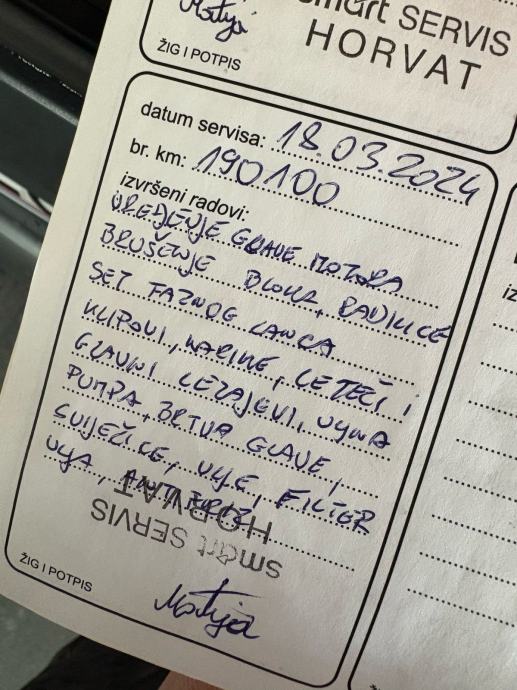 Matija
ŽIG I POTPIS
smart SERVIS
HORVAT
datum servisa: 18.03.2024
br. km: 190100
izvršeni radovi:
UREĐENJE GLAVE MOTORA
BRUŠENJE BLOKA, RADILICE
SET FAZNOG LANCA
KLIPOVI, KARIKE, LETEĆI I
GLAVNI LEŽAJEVI, ULJNA
PUMPA, BRTVA GLAVE,
SVIJEĆICE, ULJE, FILTER
ULJA, ANTIFRIZ
smart SERVIS
HORVAT
ŽIG I POTPIS
Matija
iz